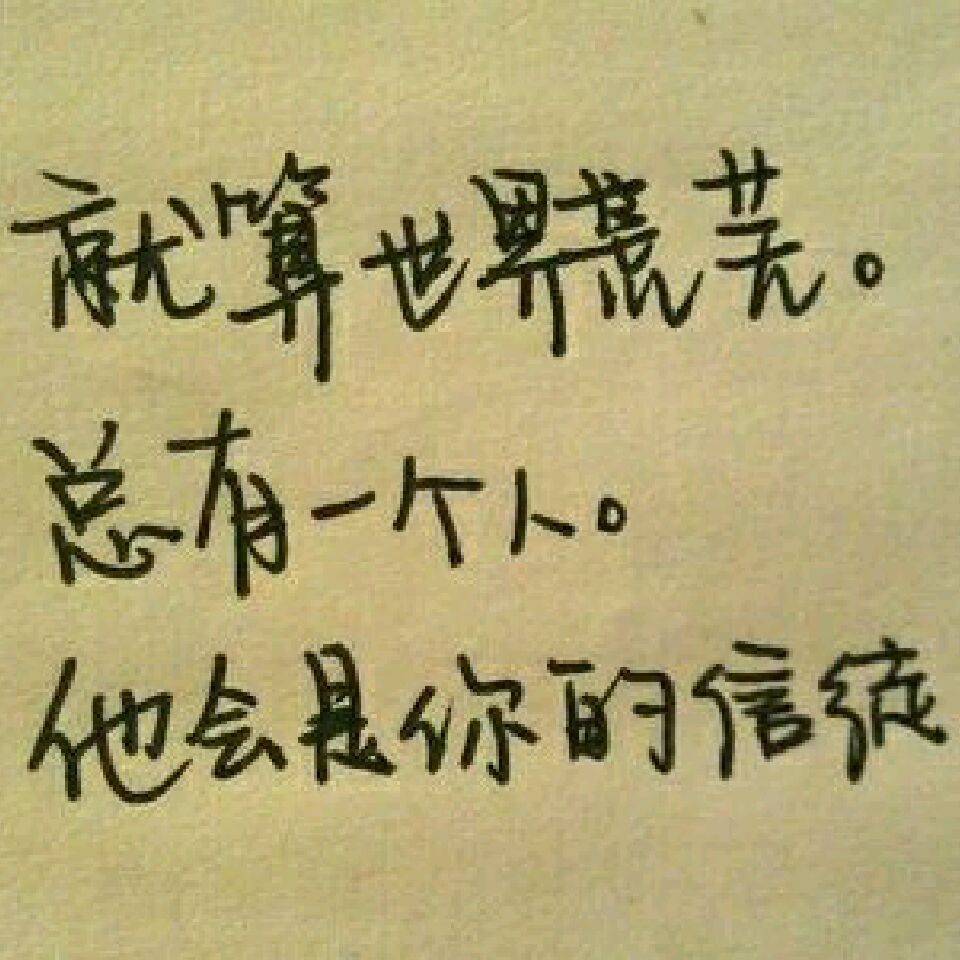 就算世界荒芜。
总有一个人。
他会是你的信徒